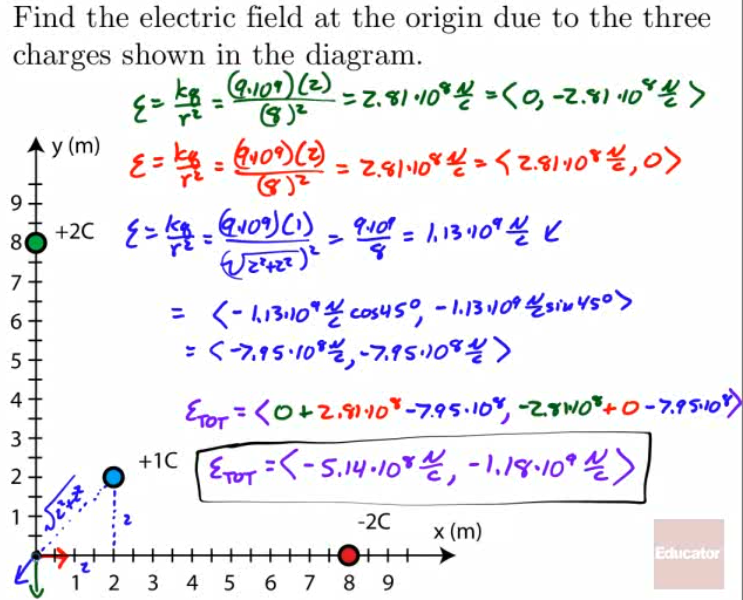 Find the electric field at the origin due to the three
charges shown in the diagram.
ε = kq/r² = (9·10⁹)(2)/(8)² = 2.81·10⁸ N/C = <0, -2.81·10⁸ N/C>
y (m)
ε = kq/r² = (9·10⁹)(2)/(8)² = 2.81·10⁸ N/C = <2.81·10⁸ N/C, 0>
9
8
+2C
ε = kq/r² = (9·10⁹)(1)/(√2²+2²)² = 9·10⁹/8 = 1.13·10⁹ N/C ↙
7
= <-1.13·10⁹ N/C cos45°, -1.13·10⁹ N/C sin45°>
6
= <-7.95·10⁸ N/C, -7.95·10⁸ N/C>
5
4
ε_TOT = <0 + 2.81·10⁸ - 7.95·10⁸, -2.81·10⁸ + 0 - 7.95·10⁸>
3
+1C
ε_TOT = <-5.14·10⁸ N/C, -1.18·10⁹ N/C>
2
√2²+2²
1
2
-2C
x (m)
Educator
2
1 2 3 4 5 6 7 8 9